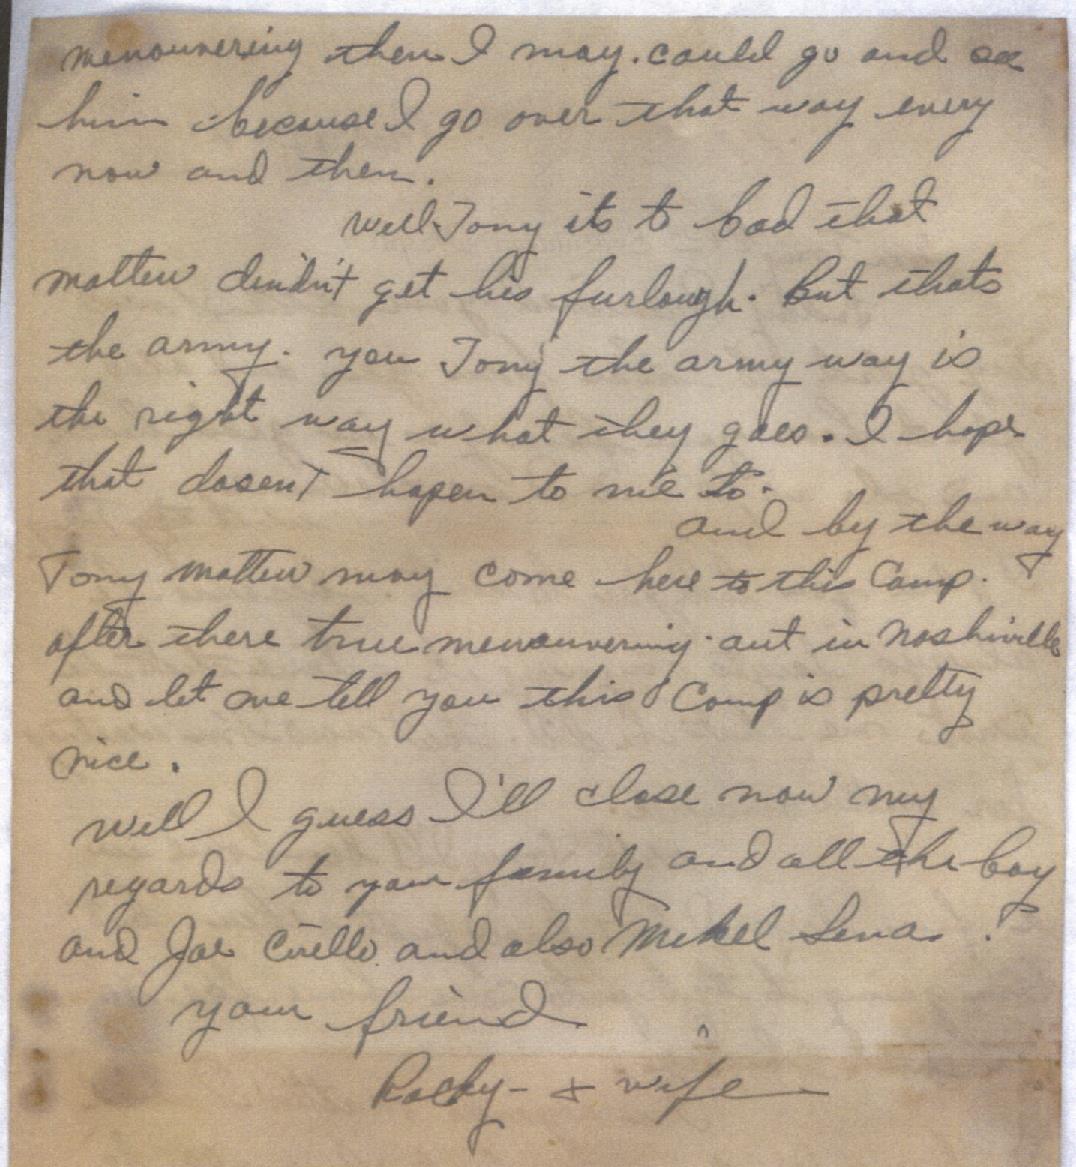 menouvering then I may. could go and see
him because I go over that way every
now and then.
Well Tony its to bad that
mattew dindn't get his furlough. But thats
the army. you Tony the army way is
the right way what they goes. I hope
that dosent hapen to me to.
and by the way
Tony mattew may come here to this Camp.
after there true menouvering out in Nashville
and let me tell you this Camp is pretty
nice.
well I guess I'll close now my
regards to your family and all the boy
and Joe Cirello and also Mikel Sena.
your friend
Rocky - & wife